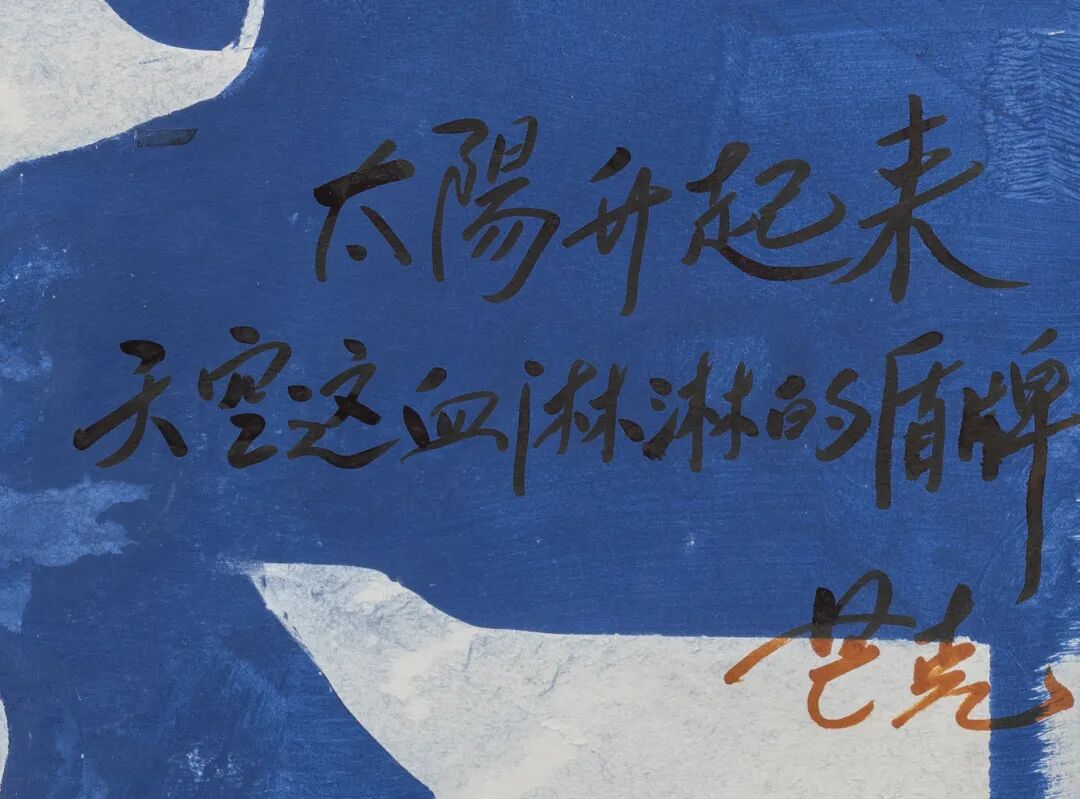 太陽升起来
天空这血淋淋的盾牌
芒克